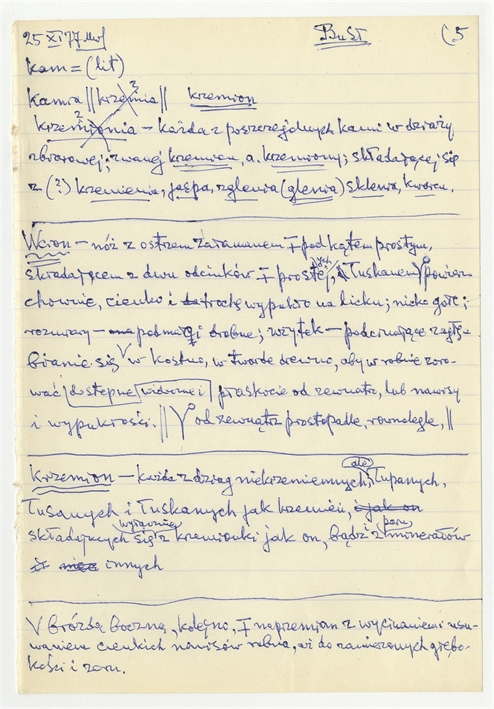 25 XI 77 BuSt (5
kam = (lit)
kamra || krzemia || ? krzemion
krzemionia ? – każda z poszczególnych kami w dziaży
zbiorowej; zwanej krzemion, a. krzemiony; składającej się
z (?) krzemienia, jaspa, zglenia (glenia) sklenia, kwarcu.
– nóż z ostrzem załamanem ∓ pod kątem prostym,
składającem z dwu odcinków ∓ prostych, łuskanem powierz-
chownie, cienko i trochę wypukło na licku;
rozmiary – drobne; użytek – podcinające zagłę-
bianie się w kostno, w twarde drewno, aby w robnie
dostępne widocznie płaskocie od zewnątrz, lub nawisy
i wypukłości. || od zewnątrz prostopadłe, równoległe, ||
krzemion – każda z dziag niekrzemiennych, ale łupanych,
łusanych i łuskanych jak krzemień, jak on
składających się wyłącznie z krzemionki jak on, bądź z paru minerałów
innych
V bróżdą boczną, kolejno, ∓ naprzemian z wycinaniem i usu-
waniem cienkich nawisów robna, aż do zamierzonych głębo-
kości i